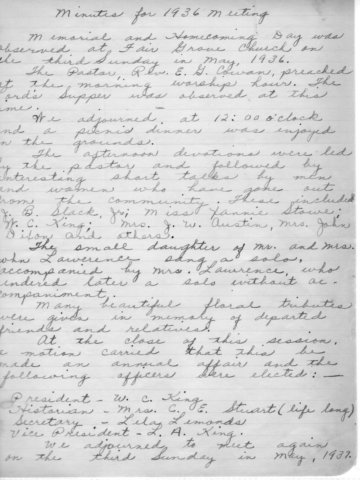 Minutes for 1936 Meeting
Memorial and Homecoming Day was
observed at Fair Grove Church on
the third Sunday in May, 1936.
The Pastor, Rev. E. G. Cowan, preached
at the morning worship hour. The
Lord's Supper was observed at this
time.
We adjourned at 12:00 o'clock
and a picnic dinner was enjoyed
on the grounds.
The afternoon devotions were led
by the pastor and followed by
interesting short talks by men
and women who have gone out
from the community. These included
J. B. Slack, Jr., Miss Fannie Stowe,
W. C. King, Mrs. J. W. Austin, Mrs. John
and others.
The small daughter of Mr. and Mrs.
John Lawerence sang a solo,
accompanied by Mrs. Lawrence, who
rendered later a solo without ac-
companiment.
Many beautiful floral tributes
were given in memory of departed
friends and relatives.
At the close of this session,
a motion carried that this be
made an annual affair and the
following officers were elected:—
President - W. C. King
Historian - Mrs. C. E. Stuart (life long)
Secretary - Lela Lemonds
Vice President - L. A. King.
We adjourned to meet again
on the third Sunday in May, 1937.